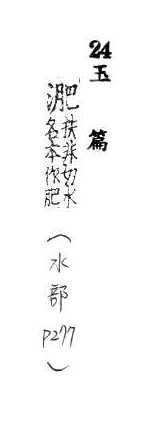 24玉篇
淝扶非切水
名本作肥
(水部 P277)